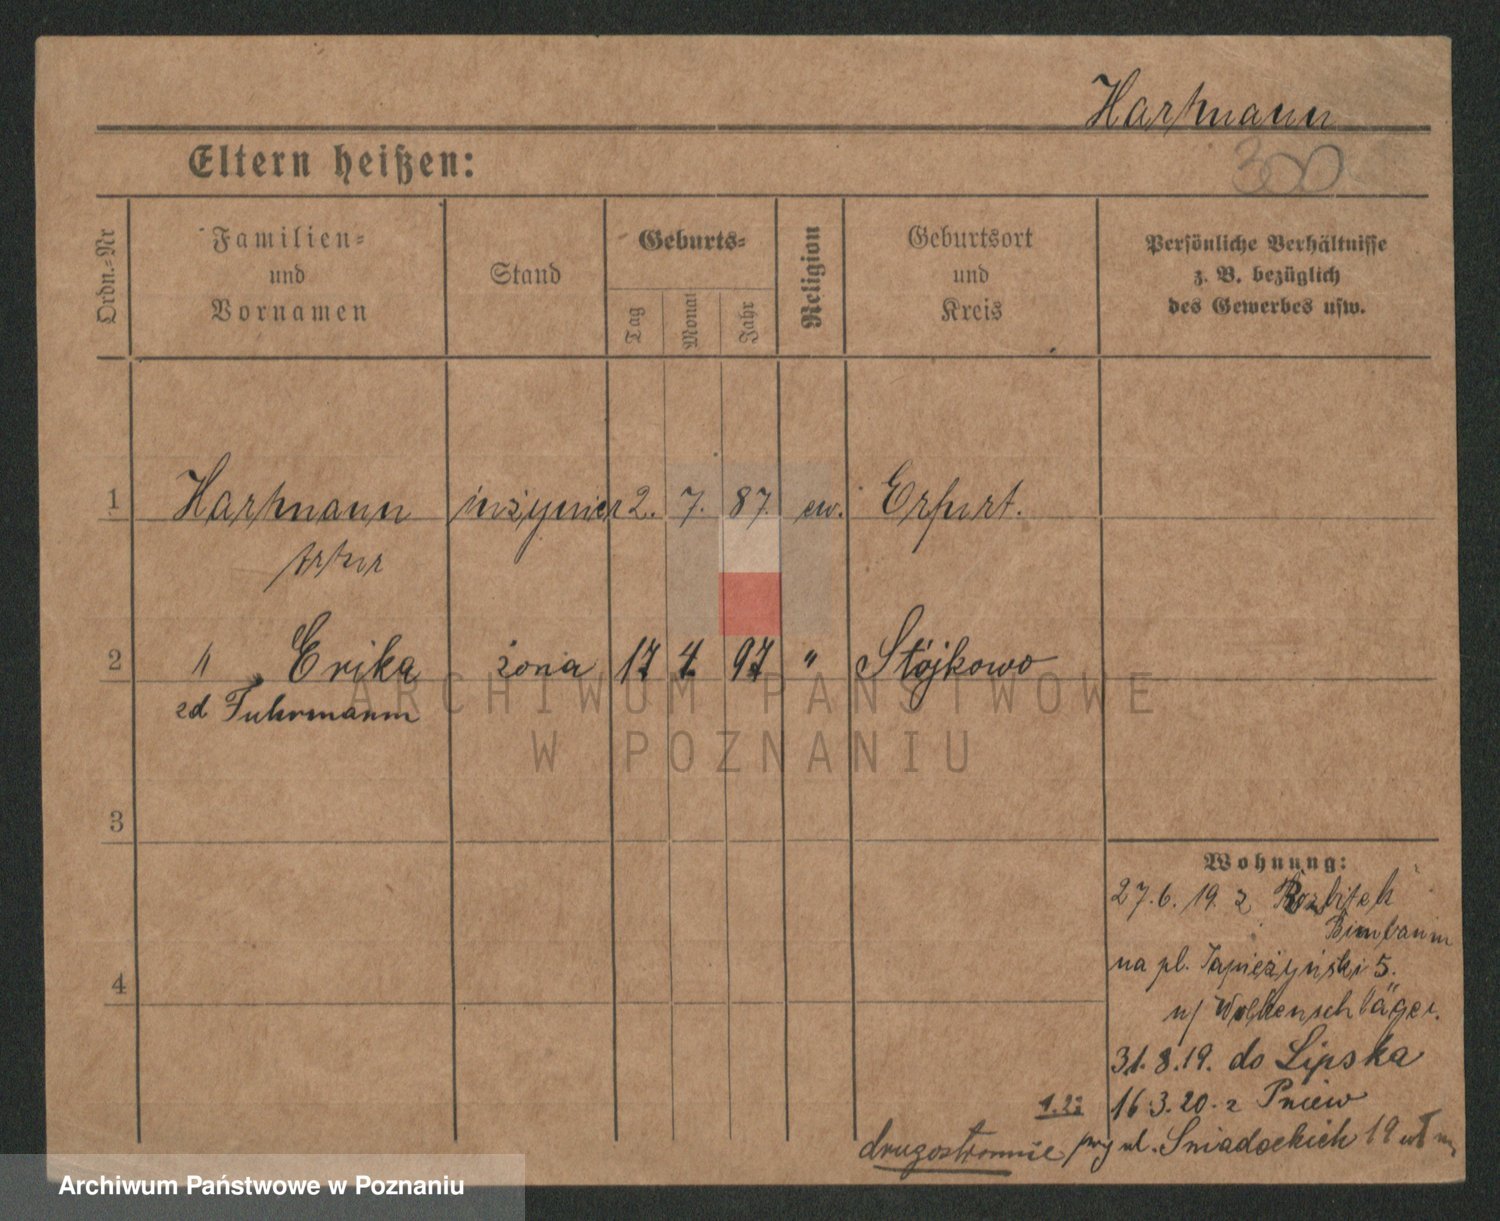 Hartmann
Eltern heißen:
300
Ordn.-Nr
Familien-
und
Vornamen
Stand
Geburts-
Tag
Monat
Jahr
Religion
Geburtsort
und
Kreis
Persönliche Verhältnisse
z. B. bezüglich
des Gewerbes usw.
1 Hartmann inżynier 2. 7. 87 ew. Erfurt.
Artur
2 " Erika żona 17 4 97 " Stójkowo
zd Fuhrmann
ARCHIWUM PAŃSTWOWE
W POZNANIU
3
4
Wohnung:
27.6.19. z Rozbitek
Birnbaum
na pl. Sapieżyński 5.
u/ Wolkenschläger.
31.8.19. do Lipska
1.2: 16.3.20. z Pniew
drugostronnie przy ul. Śniadeckich 19
Archiwum Państwowe w Poznaniu